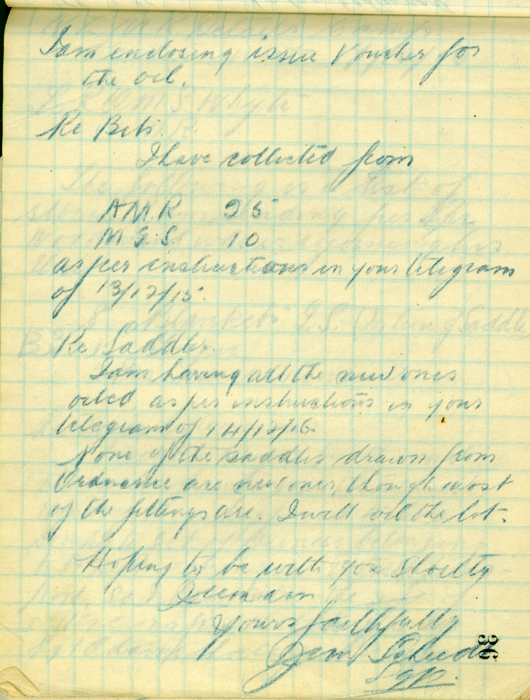 I am enclosing issue Voucher for
the oil.
Re Bits.
I have collected from
AMR 25
M.G.S. 10
as per instructions in your telegram
of 13/12/15.
Re Saddles.
I am having all the new ones
oiled as per instructions in your
telegram of 14/12/15
None of the saddles drawn from
Ordnance are new ones, though most
of the fittings are. I will oil the lot.
Hoping to be with you shortly
I remain
Yours faithfully
Sgt.
36